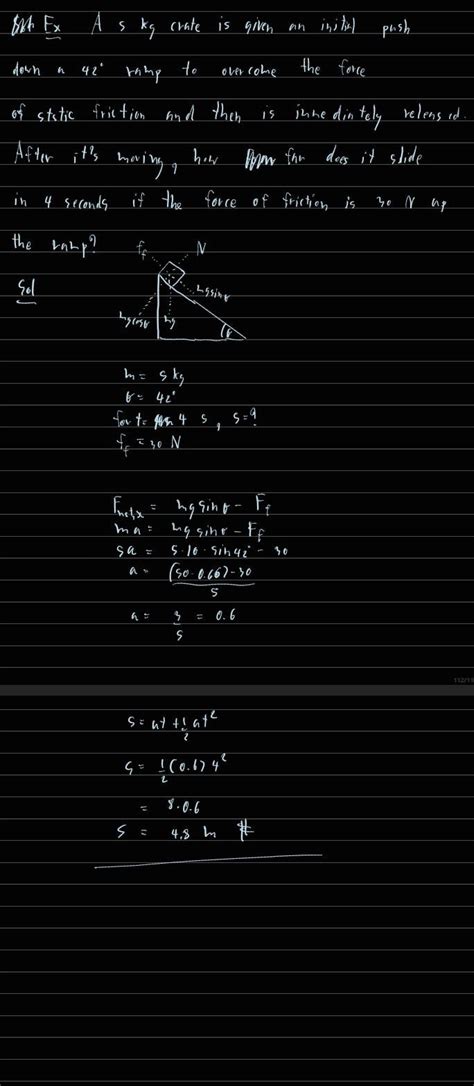 Ex A 5 kg crate is given an initial push
down a 42° ramp to overcome the force
of static friction and then is immediately released.
After it's moving, how far does it slide
in 4 seconds if the force of friction is 30 N up
the ramp?
f_f N
Sol
mg sinθ
mg cosθ mg θ
m = 5 kg
θ = 42°
for t = 4 s, s = ?
f_f = 30 N
F_net,x = mg sinθ - F_f
ma = mg sinθ - F_f
5a = 5·10·sin42° - 30
a = (50·0.66) - 30 / 5
a = 3/5 = 0.6
112/11
s = ut + 1/2 at²
s = 1/2 (0.6) 4²
= 8·0.6
s = 4.8 m #